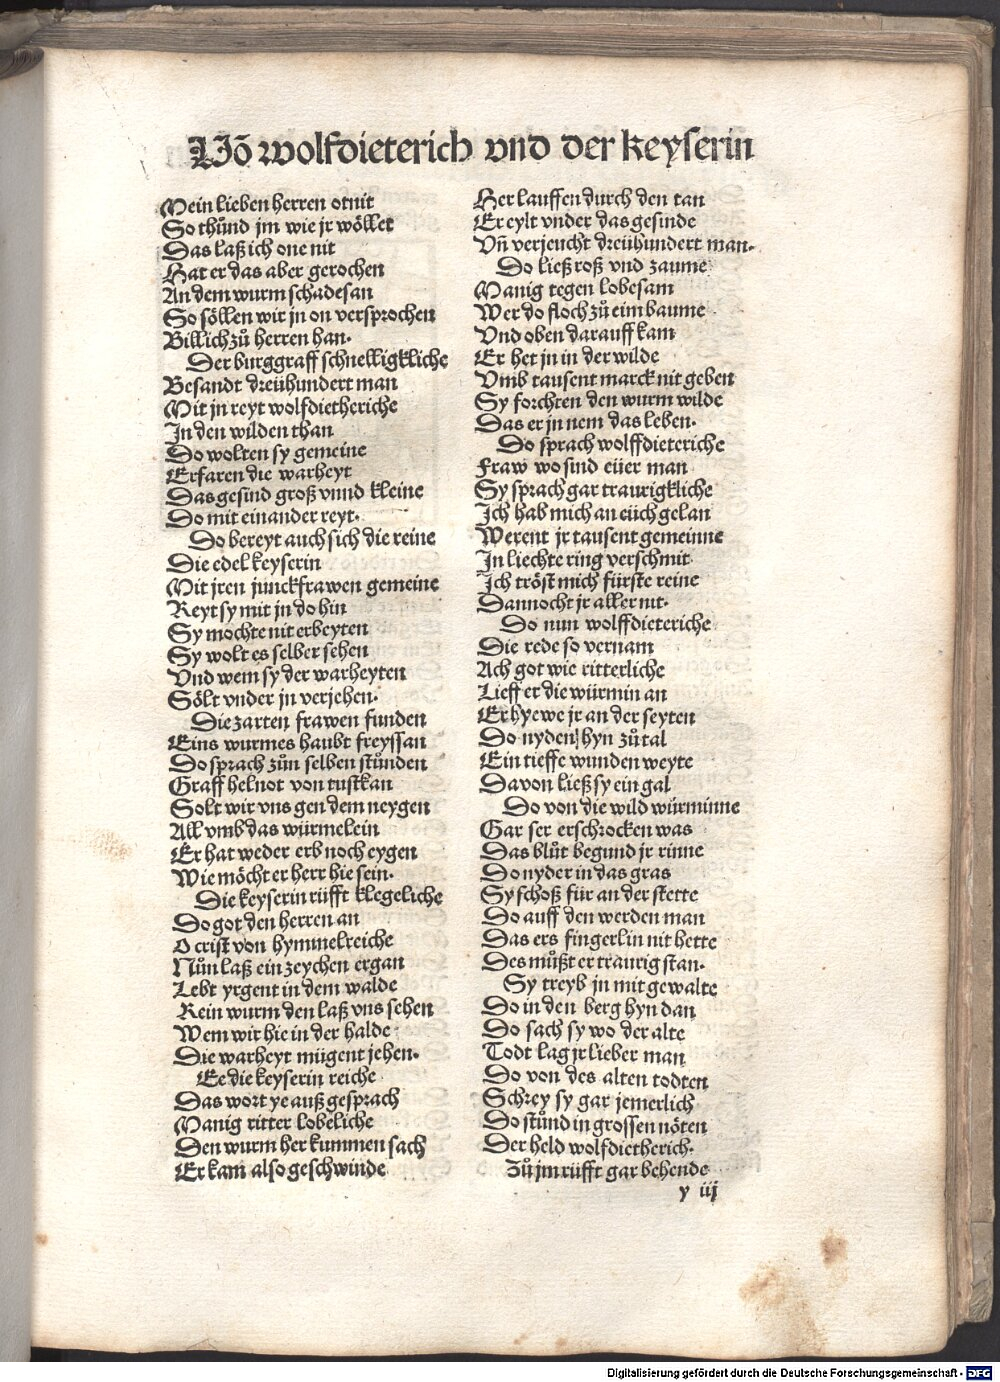 Võ wolfdieterich vnd der keyserin
Mein lieben herren otnit
So thůnd jm wie jr wöllet
Das laß ich one nit
Hat er das aber gerochen
An dem wurm schadesan
So söllen wir jn on versprochen
Billich zů herren han.
Der burggraff schnelligkliche
Besandt dreühundert man
Mit jn reyt wolfdietheriche
In den wilden than
Do wolten sy gemeine
Erfaren die warheyt
Das gesind groß vnnd kleine
Do mit einander reyt.
Do bereyt auch sich die reine
Die edel keyserin
Mit jren junckfrawen gemeine
Reyt sy mit jn do hin
Sy mochte nit erbeyten
Sy wolt es selber sehen
Vnd wem sy der warheyten
Sölt vnder jn verjehen.
Die zarten frawen funden
Eins wurmes haubt freyssan
Do sprach zům selben stůnden
Graff helnot von tustkan
Solt wir vns gen dem neygen
All vmb das würmelein
Er hat weder erb noch eygen
Wie möcht er herr hie sein.
Die keyserin rüfft klegeliche
Do got den herren an
O crist von hymmelreiche
Nůn laß ein zeychen ergan
Lebt yrgent in dem walde
Kein wurm den laß vns sehen
Wem wir hie in der halde
Die warheyt mügent jehen.
Ee die keyserin reiche
Das wort ye auß gesprach
Manig ritter lobeliche
Den wurm her kummen sach
Er kam also geschwinde
Her lauffen durch den tan
Er eylt vnder das gesinde
Vñ verjeucht dreühundert man.
Do ließ roß vnd zaume
Manig tegen lobesam
Wer do floch zů eim baume
Vnd oben darauff kam
Er het jn in der wilde
Vmb tausent marck nit geben
Sy forchten den wurm wilde
Das er jn nem das leben.
Do sprach wolffdieteriche
Fraw wo sind eüer man
Sy sprach gar traurigkliche
Ich hab mich an eüch gelan
Werent jr tausent gemeinne
In liechte ring verschmit
Ich tröst mich fürste reine
Dannocht jr aller nit.
Do nun wolffdieteriche
Die rede so vernam
Ach got wie ritterliche
Lieff er die würmin an
Er hyewe jr an der seyten
Do nyden hyn zů tal
Ein tieffe wunden weyte
Davon ließ sy ein gal
Do von die wild würminne
Gar ser erschrocken was
Das blůt begund jr rinne
Do nyder in das gras
Sy schoß für an der stette
Do auff den werden man
Das ers fingerlin nit hette
Des můßt er traurig stan.
Sy treyb jn mit gewalte
Do in den berg hyn dan
Do sach sy wo der alte
Todt lag jr lieber man
Do von des alten todten
Schrey sy gar jemerlich
Do stůnd in grossen nöten
Der held wolfdietherich.
Zů jm rüfft gar behende
y iij
Digitalisierung gefördert durch die Deutsche Forschungsgemeinschaft - DFG